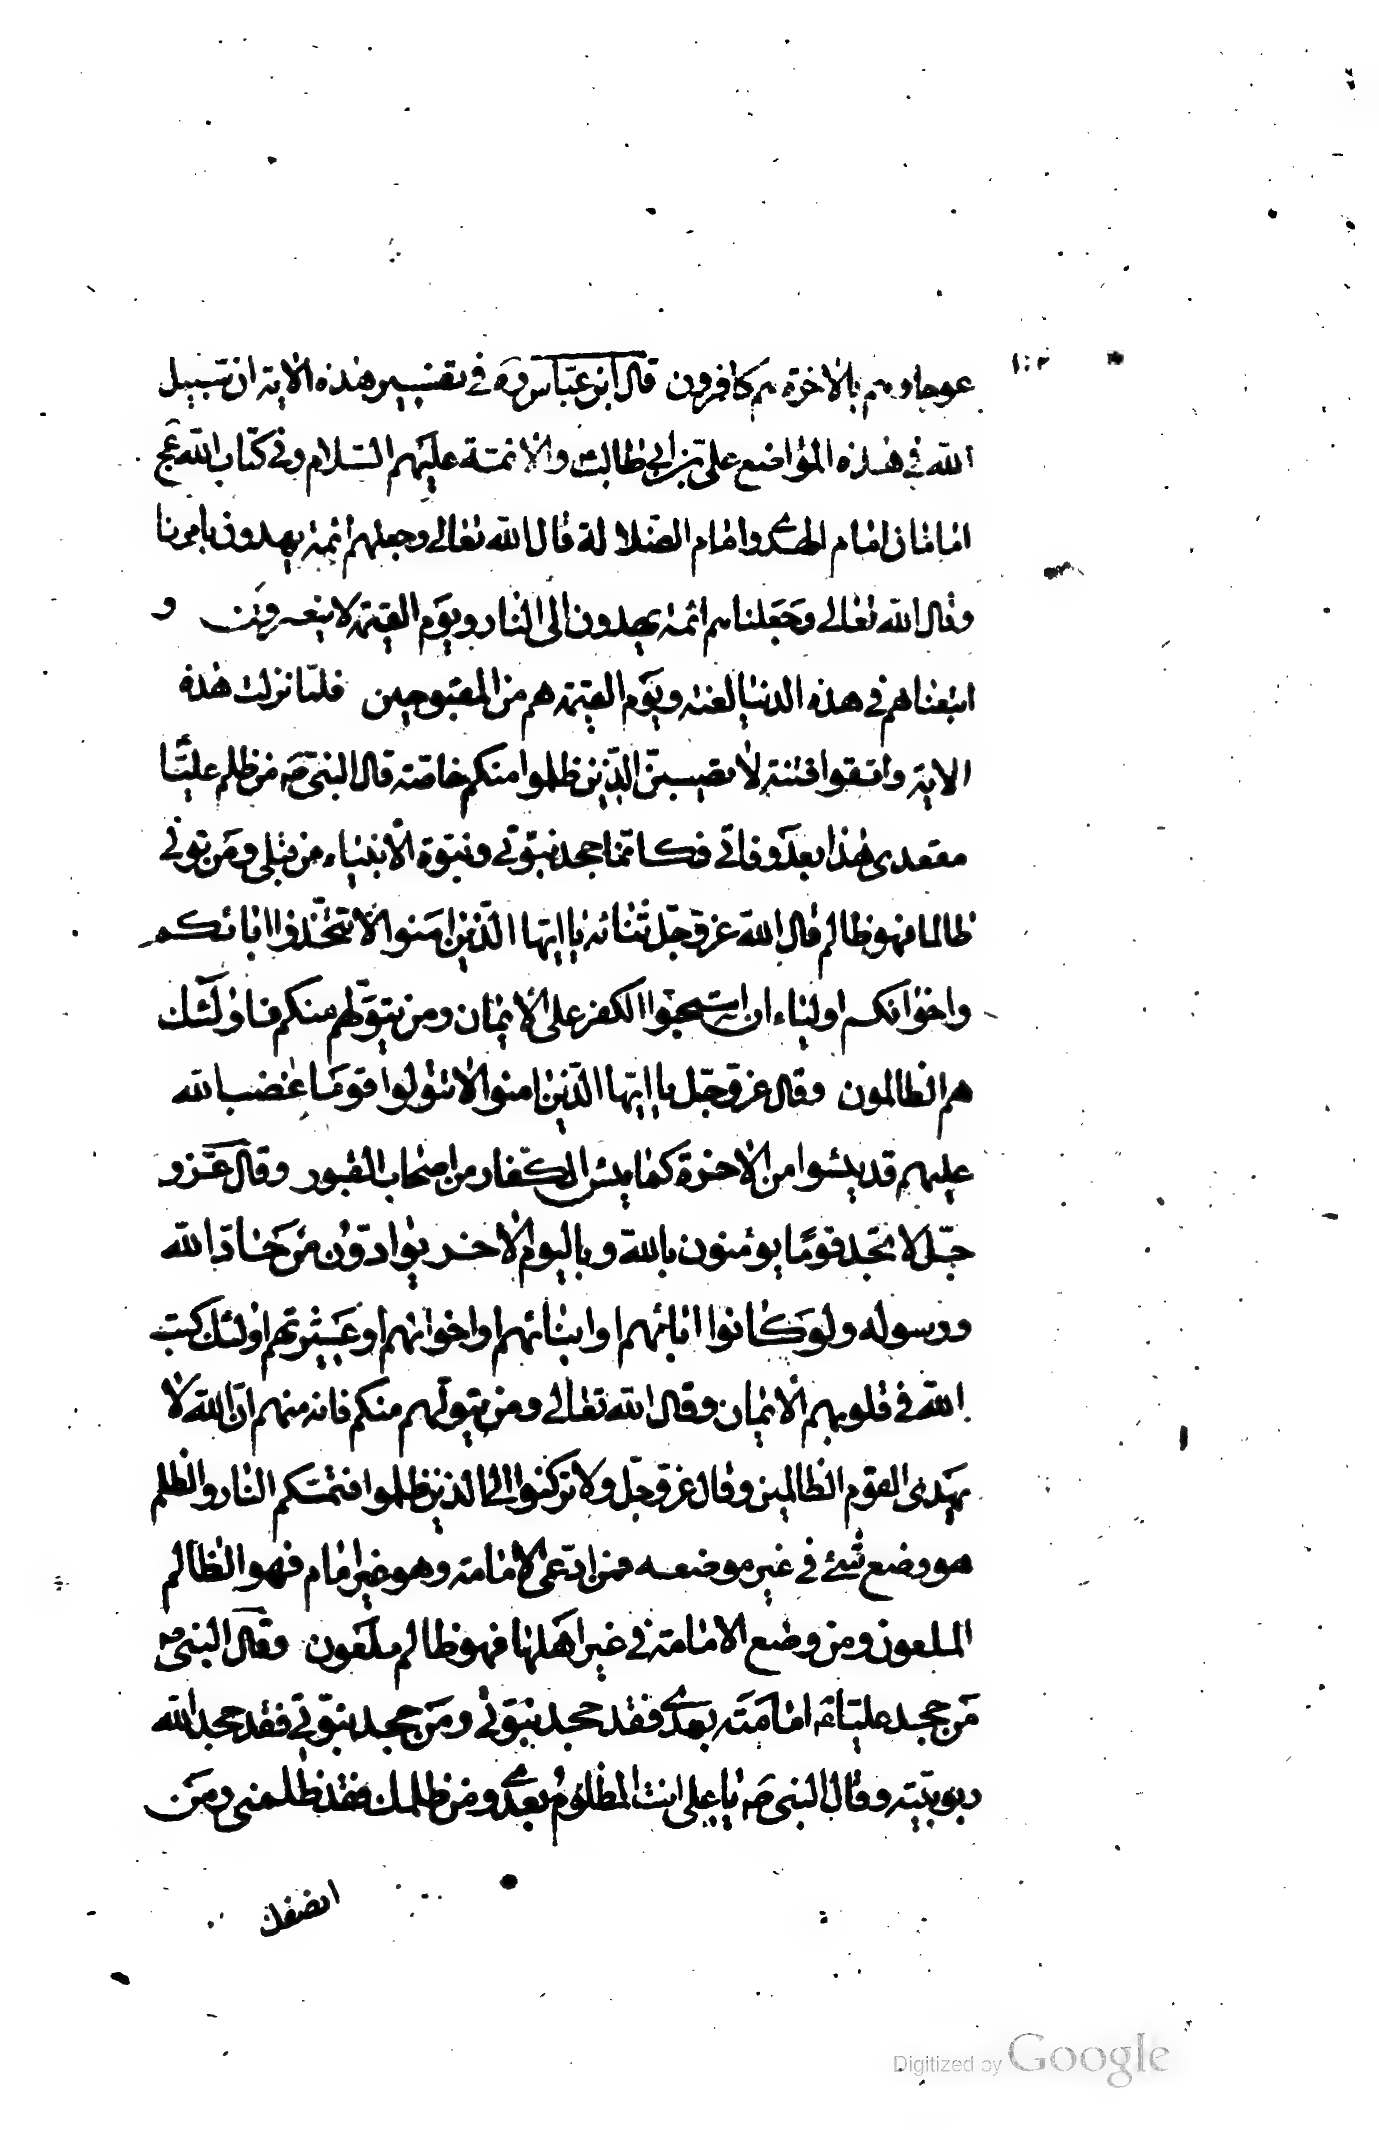 ١٠٣
عوجا وهم بالاخرة هم كافرون قال ابن عبّاس ره في تفسير هذه الاية ان سبيل
الله في هذه المواضع علي بن ابي طالب والائمّة عليهم السّلام وفي كتاب الله عج
امامان امام الهدى وامام الضّلالة قال الله تعالى وجعلهم ائمة يهدون بامرنا
وقال الله تعالى وجعلناهم ائمة يهدون الى النار ويوم القيمة لا ينصرون و
اتبعناهم في هذه الدنيا لعنة ويوم القيمة هم من المقبوحين فلمّا نزلت هذه
الاية واتقوا فتنة لا تصيبنّ الّذين ظلموا منكم خاصّة قال النبيّ صه من ظلم عليّا
مقعدى هذا بعد وفاتي فكانّما جحد نبوّتي ونبوّة الانبياء من قبلي ومن تولى
ظالما فهو ظالم قال الله عزّ وجلّ ثنائه يا ايّها الّذين امنوا لا تتّخذوا ابائكم
واخوانكم اولياء ان استحبّوا الكفر على الايمان ومن يتولّهم منكم فاولئك
هم الظالمون وقال عزّ وجلّ يا ايّها الّذين امنوا لا تتولوا قوما غضب الله
عليهم قد يئسوا من الاخرة كما يئس الكفّار من اصحاب القبور وقال عزّ و
جلّ لا تجد قومًا يؤمنون بالله وباليوم الاخر يوادّون من حادّ الله
ورسوله ولو كانوا ابائهم او ابنائهم او اخوانهم او عشيرتهم اولئك كتب
الله في قلوبهم الايمان وقال الله تعالى ومن يتولّهم منكم فانه منهم انّ الله لا
يهدى القوم الظالمين وقال عزّ وجلّ ولا تركنوا الى الذين ظلموا فتمسّكم النار والظلم
هو وضع شئ في غير موضعه فمن ادّعى الامامة وهو غير امام فهو الظالم
الملعون ومن وضع الامامة في غير اهلها فهو ظالم ملعون وقال النبي صه
من جحد عليّا ع امامته بعدى فقد جحد نبوّتي ومن جحد نبوّتي فقد جحد الله
ربوبيّته وقال النبي صه يا علي انت المظلوم بعدى ومن ظلمك فقد ظلمني ومن
انصفك
Digitized by Google